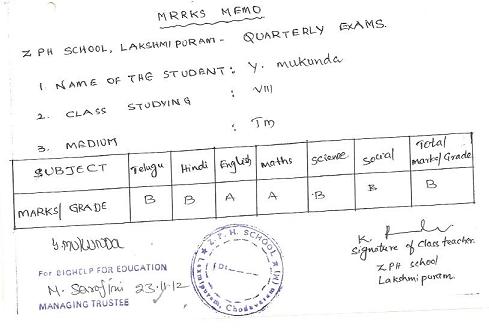 MRRKS MEMO
Z PH SCHOOL, LAKSHMIPURAM - QUARTERLY EXAMS.
1. NAME OF THE STUDENT : Y. mukunda
2. CLASS STUDYING : VIII
3. MEDIUM : Tm
SUBJECT Telugu Hindi English maths science social Total marks/Grade
MARKS/ GRADE B B A A B B B
Y.MUKUNDA
K.
Signature of class teacher.
Z PH school
Lakshmipuram.
Z. P. H. SCHOOL
Laxmipuram, Chodavaram (M)
Dt:
For BIGHELP FOR EDUCATION
23-11-12
MANAGING TRUSTEE